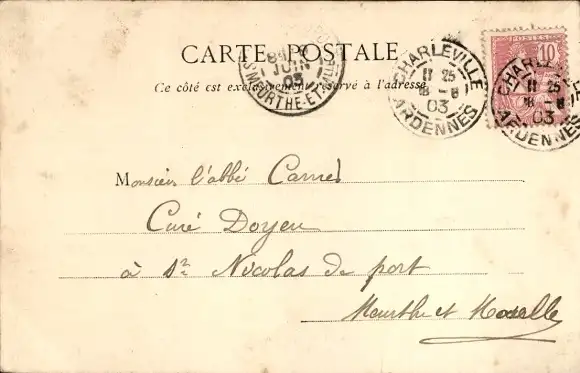 CARTE POSTALE
Ce côté est exclusivement réservé à l'adresse
JUIN
03
MEURTHE-ET-M
CHARLEVILLE
11 25
8 -6
03
ARDENNES
POSTES
10
CHARLEVILLE
11 25
03
ARDENNES
Monsieur l'abbé
Curé Doyen
à St Nicolas de port
Meurthe et Moselle